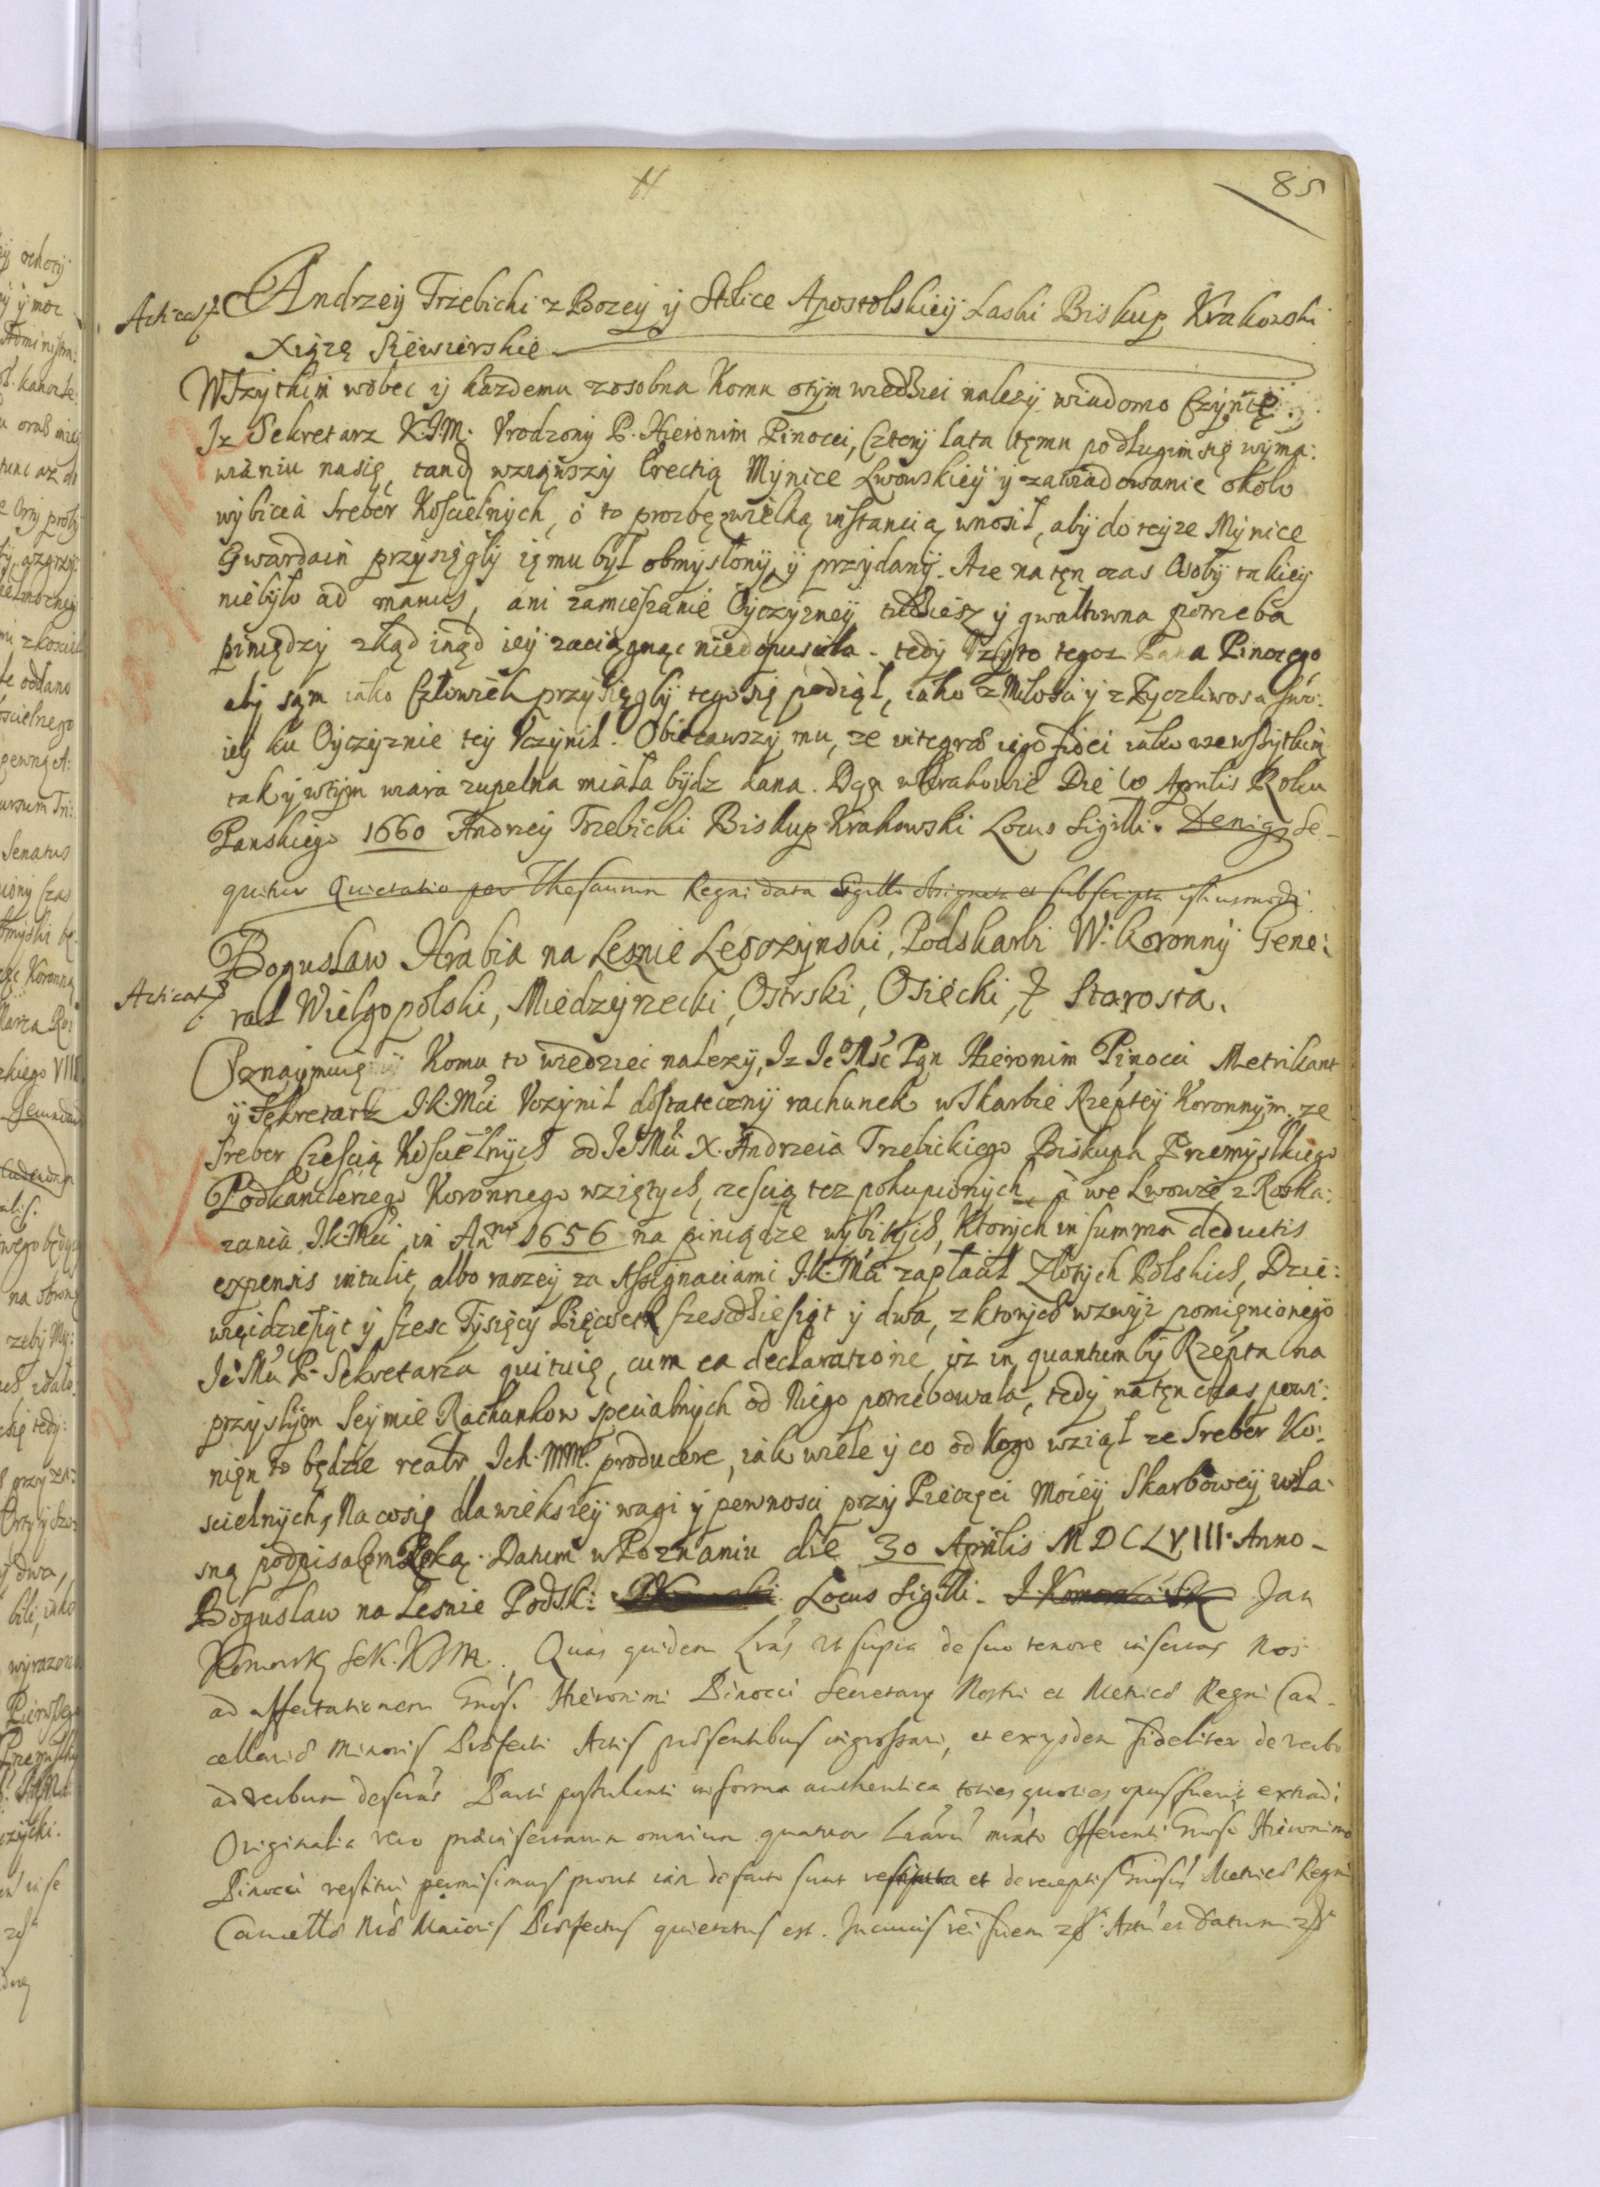 85
Andrzey Trzebicki z Bozey y Stolice Apostolskiey Łaski Biskup Krakowski
Xiązę Siewierskie
Wszytkim wobec y kazdemu zosobna Komu otym wiedziec nalezy wiadomo Czynię.
Iz Sekretarz K.I.M. Vrodzony P. Hieronim Pinocci, Cztery lata temu po długim się wyma:
wianiu nasię, tandem wziąwszy Erectią Mynice Lwowskiey y zawiadowanie około
wybicia Sreber Koscielnych, o to prozbę wielką instancią wnosił, aby do teyze Mynice
Gwardain przysięgły iemu był obmyslony y przydany. Aze na ten czas Osoby takiey
niebyło ad manus, ani zamieszanie Oyczyzney, tudziesz y gwałtowna potrzeba
pieniędzy zkąd inąd iey zaciągnąc niedopusciła. tedy Vzyto tegoz Pana Pinocego
aby sam iako Człowiek przysięgły tego się podiął, iako z Miłosci y z Zyczliwosci swo:
iey ku Oyczyznie tey Vczynił. Obiecawszy mu, ze integra iego fidei iako we wszytkim
tak y wtym wiara zupełna miała bydz dana. Dan w Krakowie Die 10 Aprilis Roku
Panskiego 1660 Andrzey Trzebicki Biskup Krakowski Locus Sigilli. Deniq Se-
quitur Quietatio per Thesaurum Regni data Sigillo obsignata et subscripta istiusmodi
Bogusław Hrabia na Lesznie Lesczynski, Podskarbi W. Koronny Gene:
rał Wielgopolski, Miedzyrzecki, Ostrski, Osiecki, Starosta.
Oznaymuię Komu to wiedziec nalezy, Iz Ie Mśc Pan Hieronim Pinocci Metrikant
y Sekretarz I.K.Mci Vczynił dostateczny rachunek w Skarbie Rzeptey Koronnym ze
Sreber Częscią Koscielnych od Ie Mci X. Andrzeia Trzebickiego Biskupa Przemyskiego
Podkanclerzego Koronnego wziętych, częscią tez pokupionych, a we Lwowie z Roska:
zania I.K.Mci in Anno 1656 na pieniądze wybitych, Ktorych in summa deductis
expensis intulit, albo raczey za Assignaciami I.K.Mci zapłacił Złotych Polskich, Dzie:
więcdziesiąt y szesc Tysięcy Pięcset szescdziesiąt y dwa, z ktorych wzwyz pomięnionego
Ie Mci P. Sekretarza quituię, cum ea declaratione, iz in quantum by Rzepta na
przyszłym Seymie Rachunkow specialnych od Niego potrzebowała, tedy na ten czas powi:
nien to będzie Ich MM. producere, iak wiele y co od Kogo wziął ze Sreber Ko:
scielnych, Na cosię dla wiekszey wagi y pewnosci przy Pieczęci Moiey Skarbowey wła:
sną podpisałem Ręką. Datum w Poznaniu die 30 Aprilis MDCLVIII. Anno-
Bogusław na Lesznie Podsk: Locus Sigilli. Jan
Komorsky Sek. KJM. Quas quidem Lras ut supra de suo tenore insertas Nos
ad affectationem Hieronimi Pinocci Secretary Nostri et Metrices Regni Can-
cellariæ Minoris Præfecti Actis præsentibus ingrossari, et exysdem fideliter de verbo
ad verbum Parti postulenti in forma authentica toties quoties opus fuerit extradi
Originalia vero præinsertarum omnium quatuor Offerenti Hieronimo
Pinocci restitui permisimus prout iam de facto sunt restituta et de receptis Metrices Regni
Cancellæ Maioris Præfectus quietatus est. In cuius rei fidem Actu et Datum